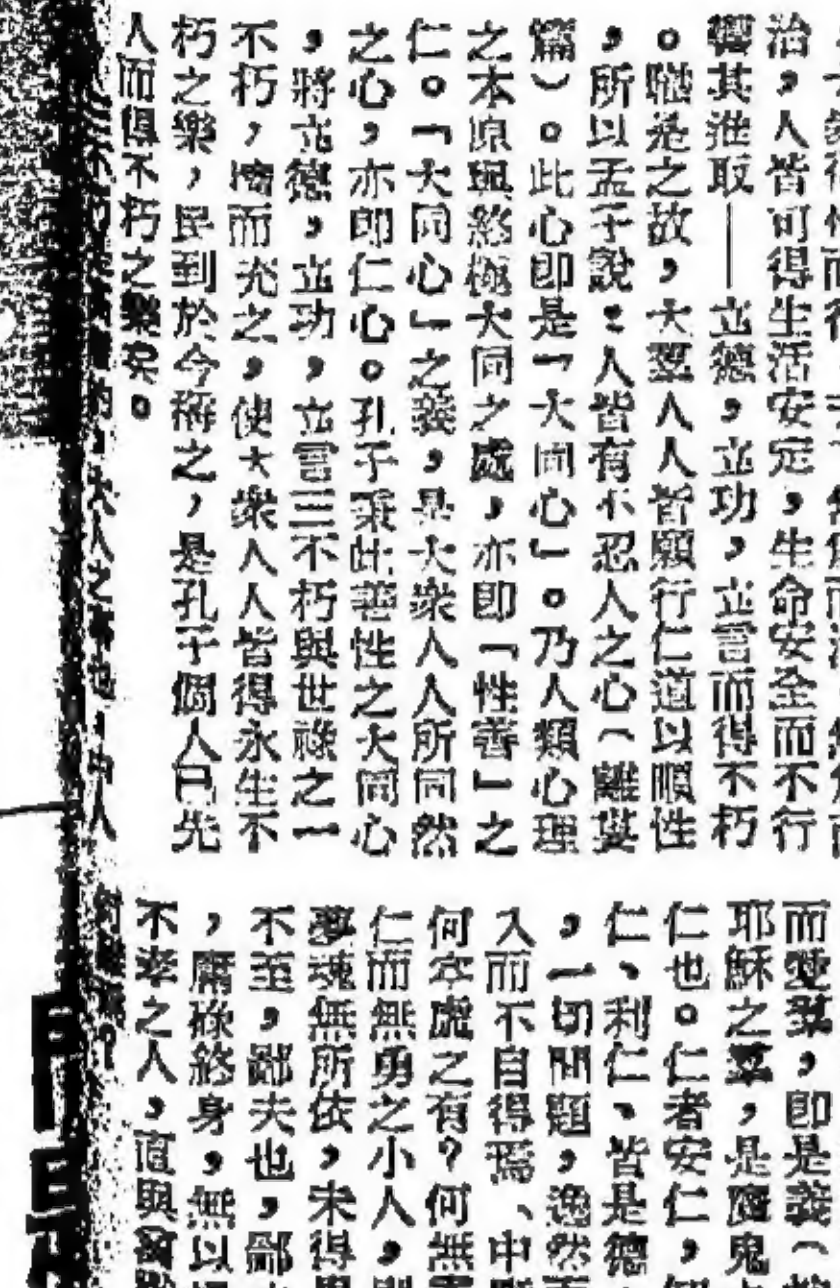 治,人皆可得生活安定,生命安全而不行
其進取——立德,立功,立言而得不朽
。職是之故,大聖人人皆願行仁道以順性
,所以孟子說:人皆有不忍人之心(離婁
篇)。此心即是「大同心」。乃人類心理
之本原與終極大同之處,亦即「性善」之
仁。「大同心」之義,是大眾人人所同然
之心,亦即仁心。孔子秉此善性之大同心
,將立德,立功,立言三不朽與世祿之一
不朽,擴而充之,使大眾人人皆得永生不
朽之樂,民到於今稱之,是孔子個人已先
人而得不朽之樂矣。
大人之事也,中人
而愛羣,即是義(
耶穌之羣,是魔鬼
仁也。仁者安仁,
仁、利仁、皆是德
,一切問題,逸然
入而不自得焉、中
何牢虎之有?何無
仁而無勇之小人,則
夢魂無所依,未得
不至,鄙夫也,鄙
,庸祿終身,無以
不孝之人,直與